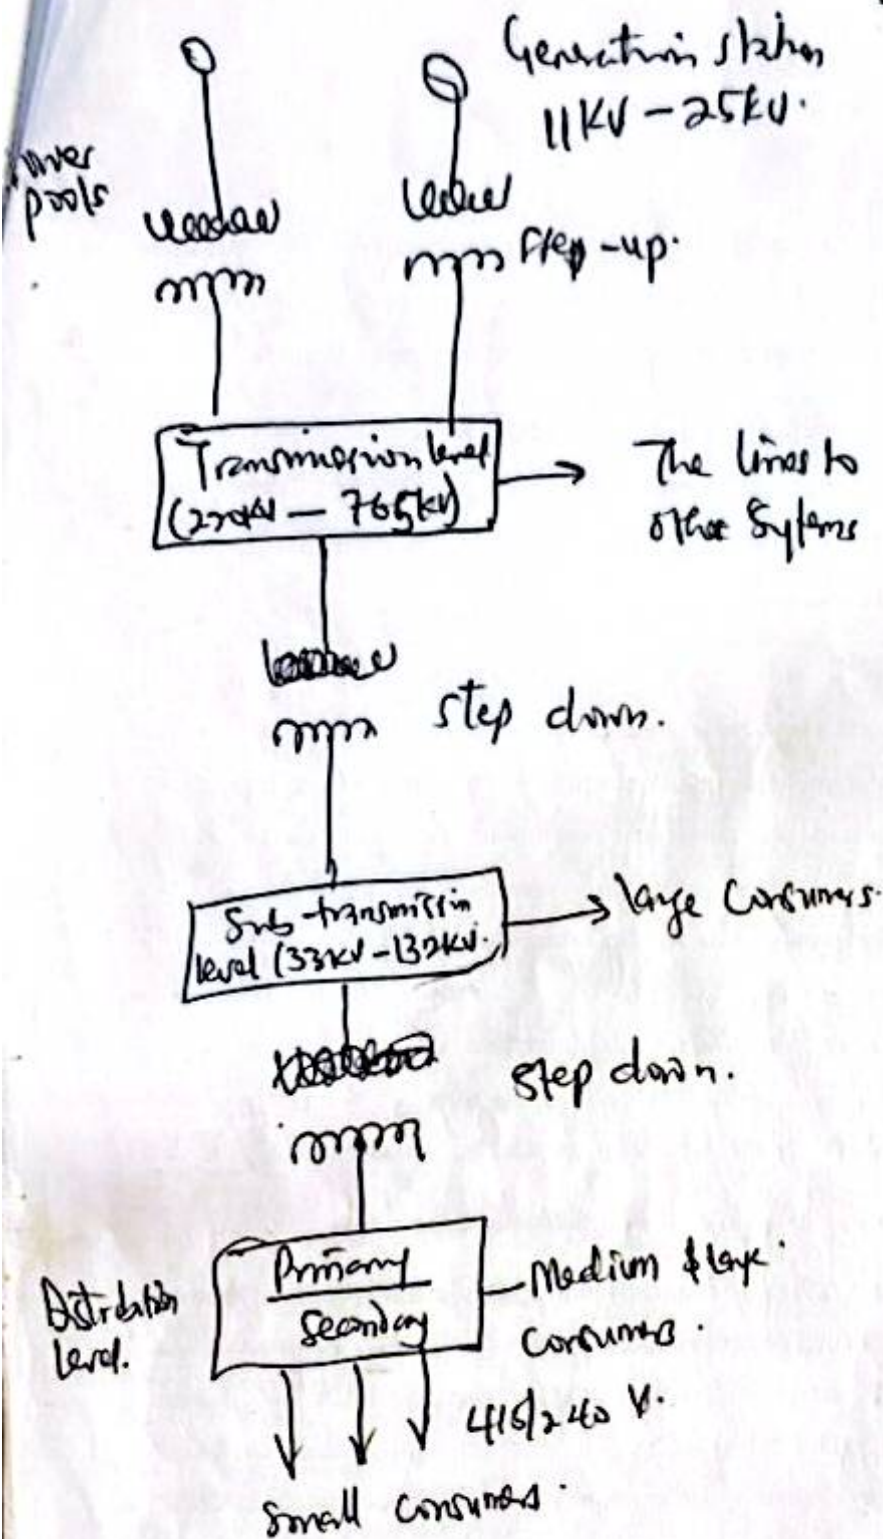 Generation station
11KV - 25KV.
pools
step-up.
Transmission level
(220KV — 765KV)
The lines to
other Systems
step down.
Sub-transmissin
level (33KV - 132KV.)
large Consumers.
step down.
Distribution
level.
Primary
Secondary
Medium & large.
Consumers.
415/240 V.
Small Consumers.